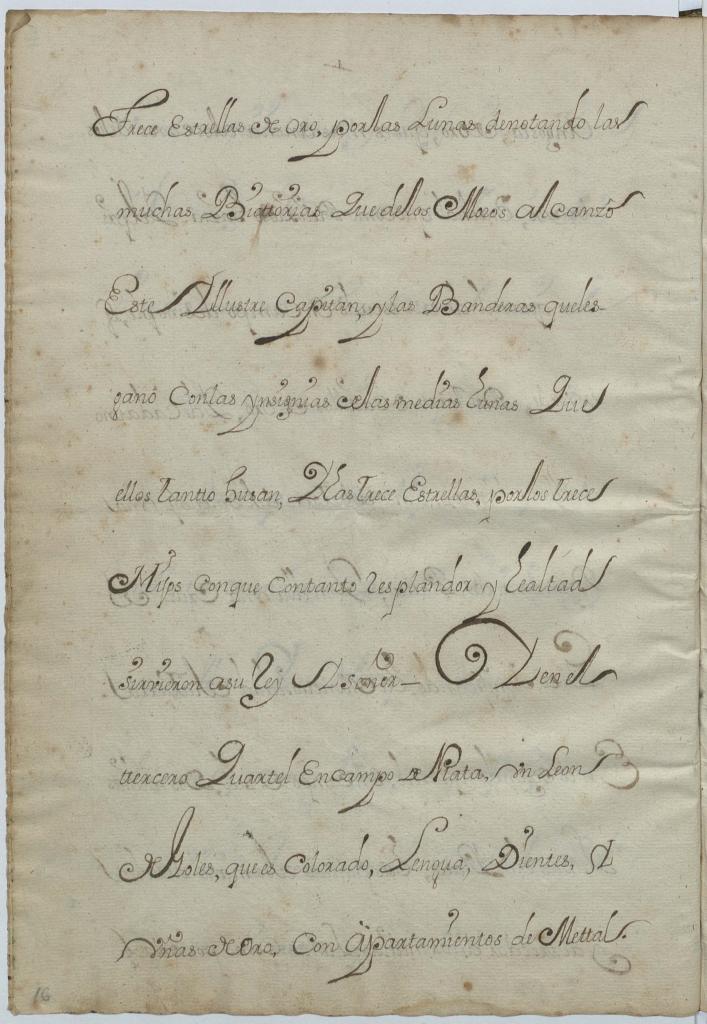 Trece Estrellas de Oro, por las Lunas denotando las
muchas Bicttorias Que de los Moros alcanzó
Este Yllustre Capitan, y las Banderas que les
ganó Con las ynsignias de las medias Lunas Que
ellos tantto husan, Y las trece Estrellas, por los trece
Mijos con que Con tanto resplandor y Lealtad
sirvieron a su Rey Y señor — Y en el
ttercero Quartel En campo de Plata, un Leon
de Goles, que es Colorado, Lengua, Dientes, Y
uñas de Oro, Con Apartamientos de Mettal.
16